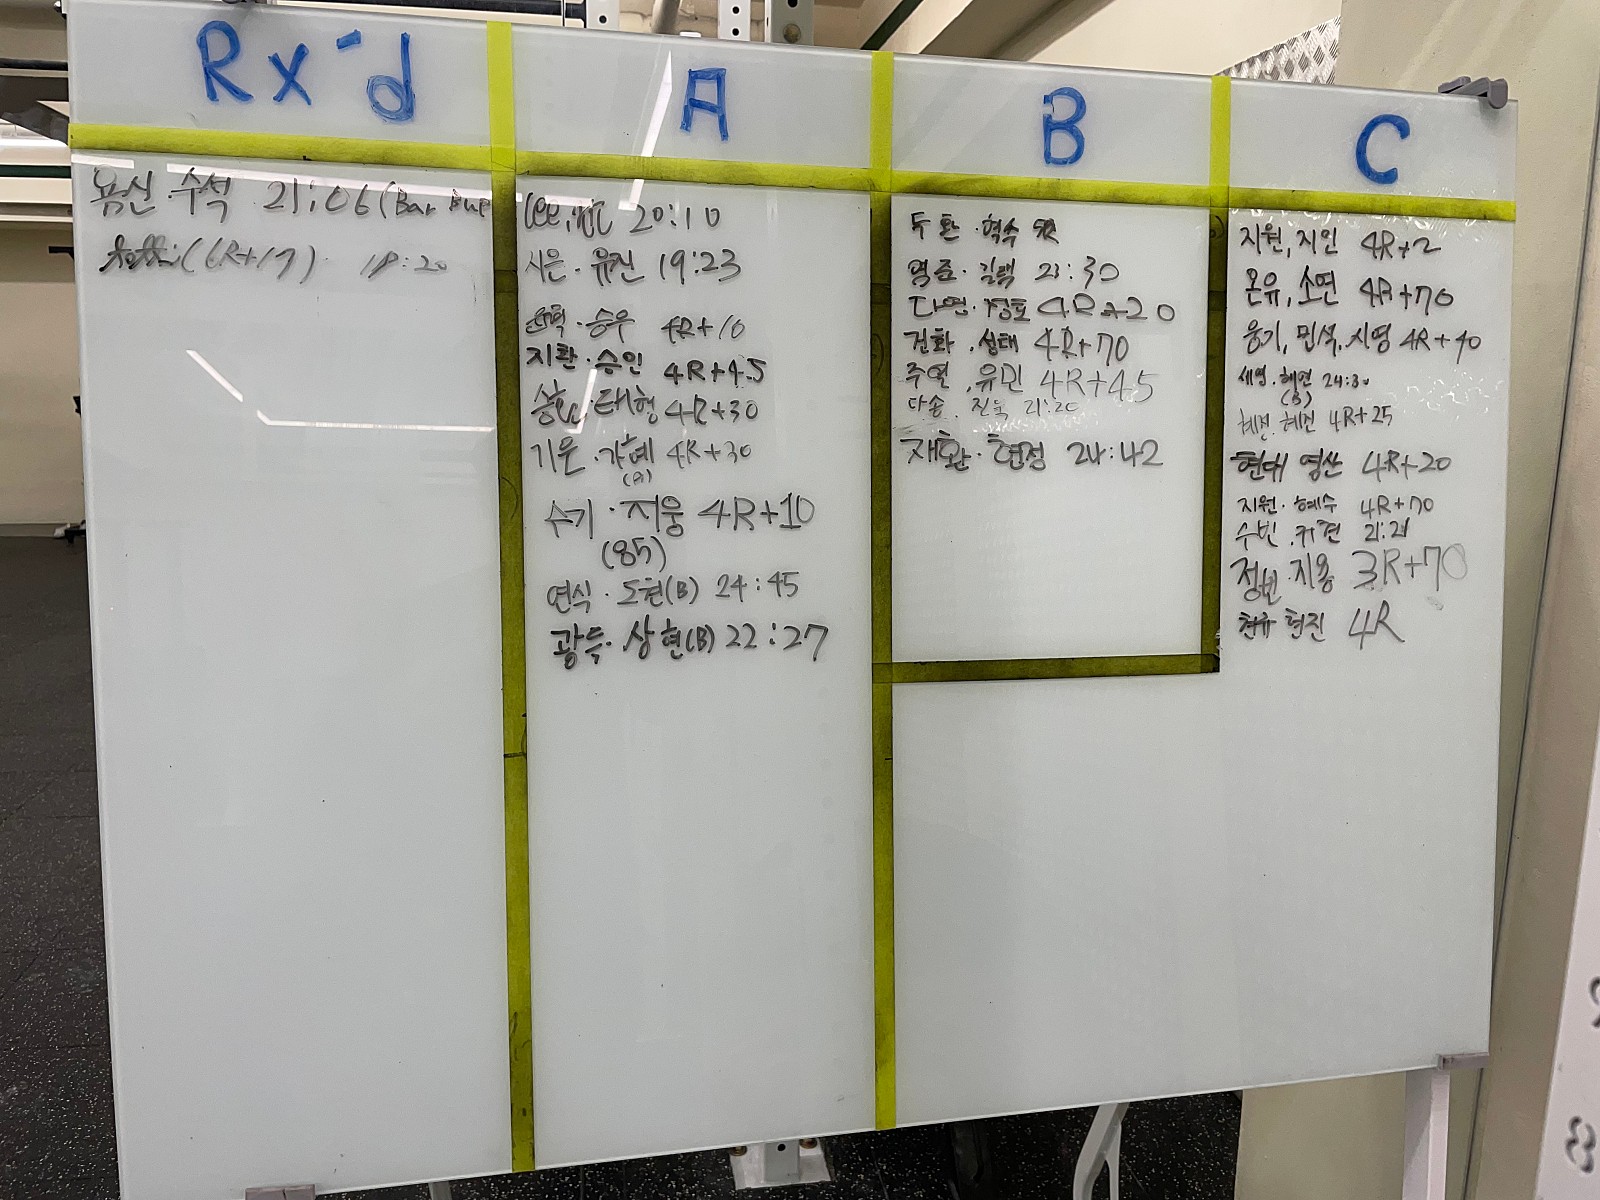 Rx'd
용신·수석 21:06 (Bar
(6R+17) 18:20
A
Lee, 20:10
시은·유진 19:23
승우 4R+10
지환·승인 4R+45
태형 4R+30
기운·가혜 4R+30
수기·지웅 4R+10
(85)
연식·도현(B) 24:45
광득·상현(B) 22:27
B
두환·혁수
영준·길택 21:30
다영· 4R+20
건화, 성태 4R+70
주열, 유민 4R+45
다솔. 진욱 21:20
재환·현정 24:42
C
지원, 지인 4R+2
온유, 소연 4R+70
웅기, 민석, 시영 4R+40
세영, 혜연 24:30
(B)
4R+25
현대 영산 4R+20
지원·혜수 4R+70
수빈. 21:21
지용 3R+70
현진 4R